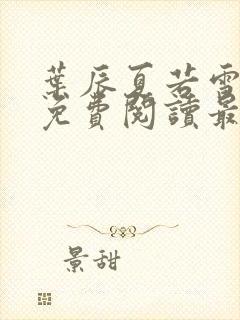 葉辰夏若雪
免費閱讀最
景甜